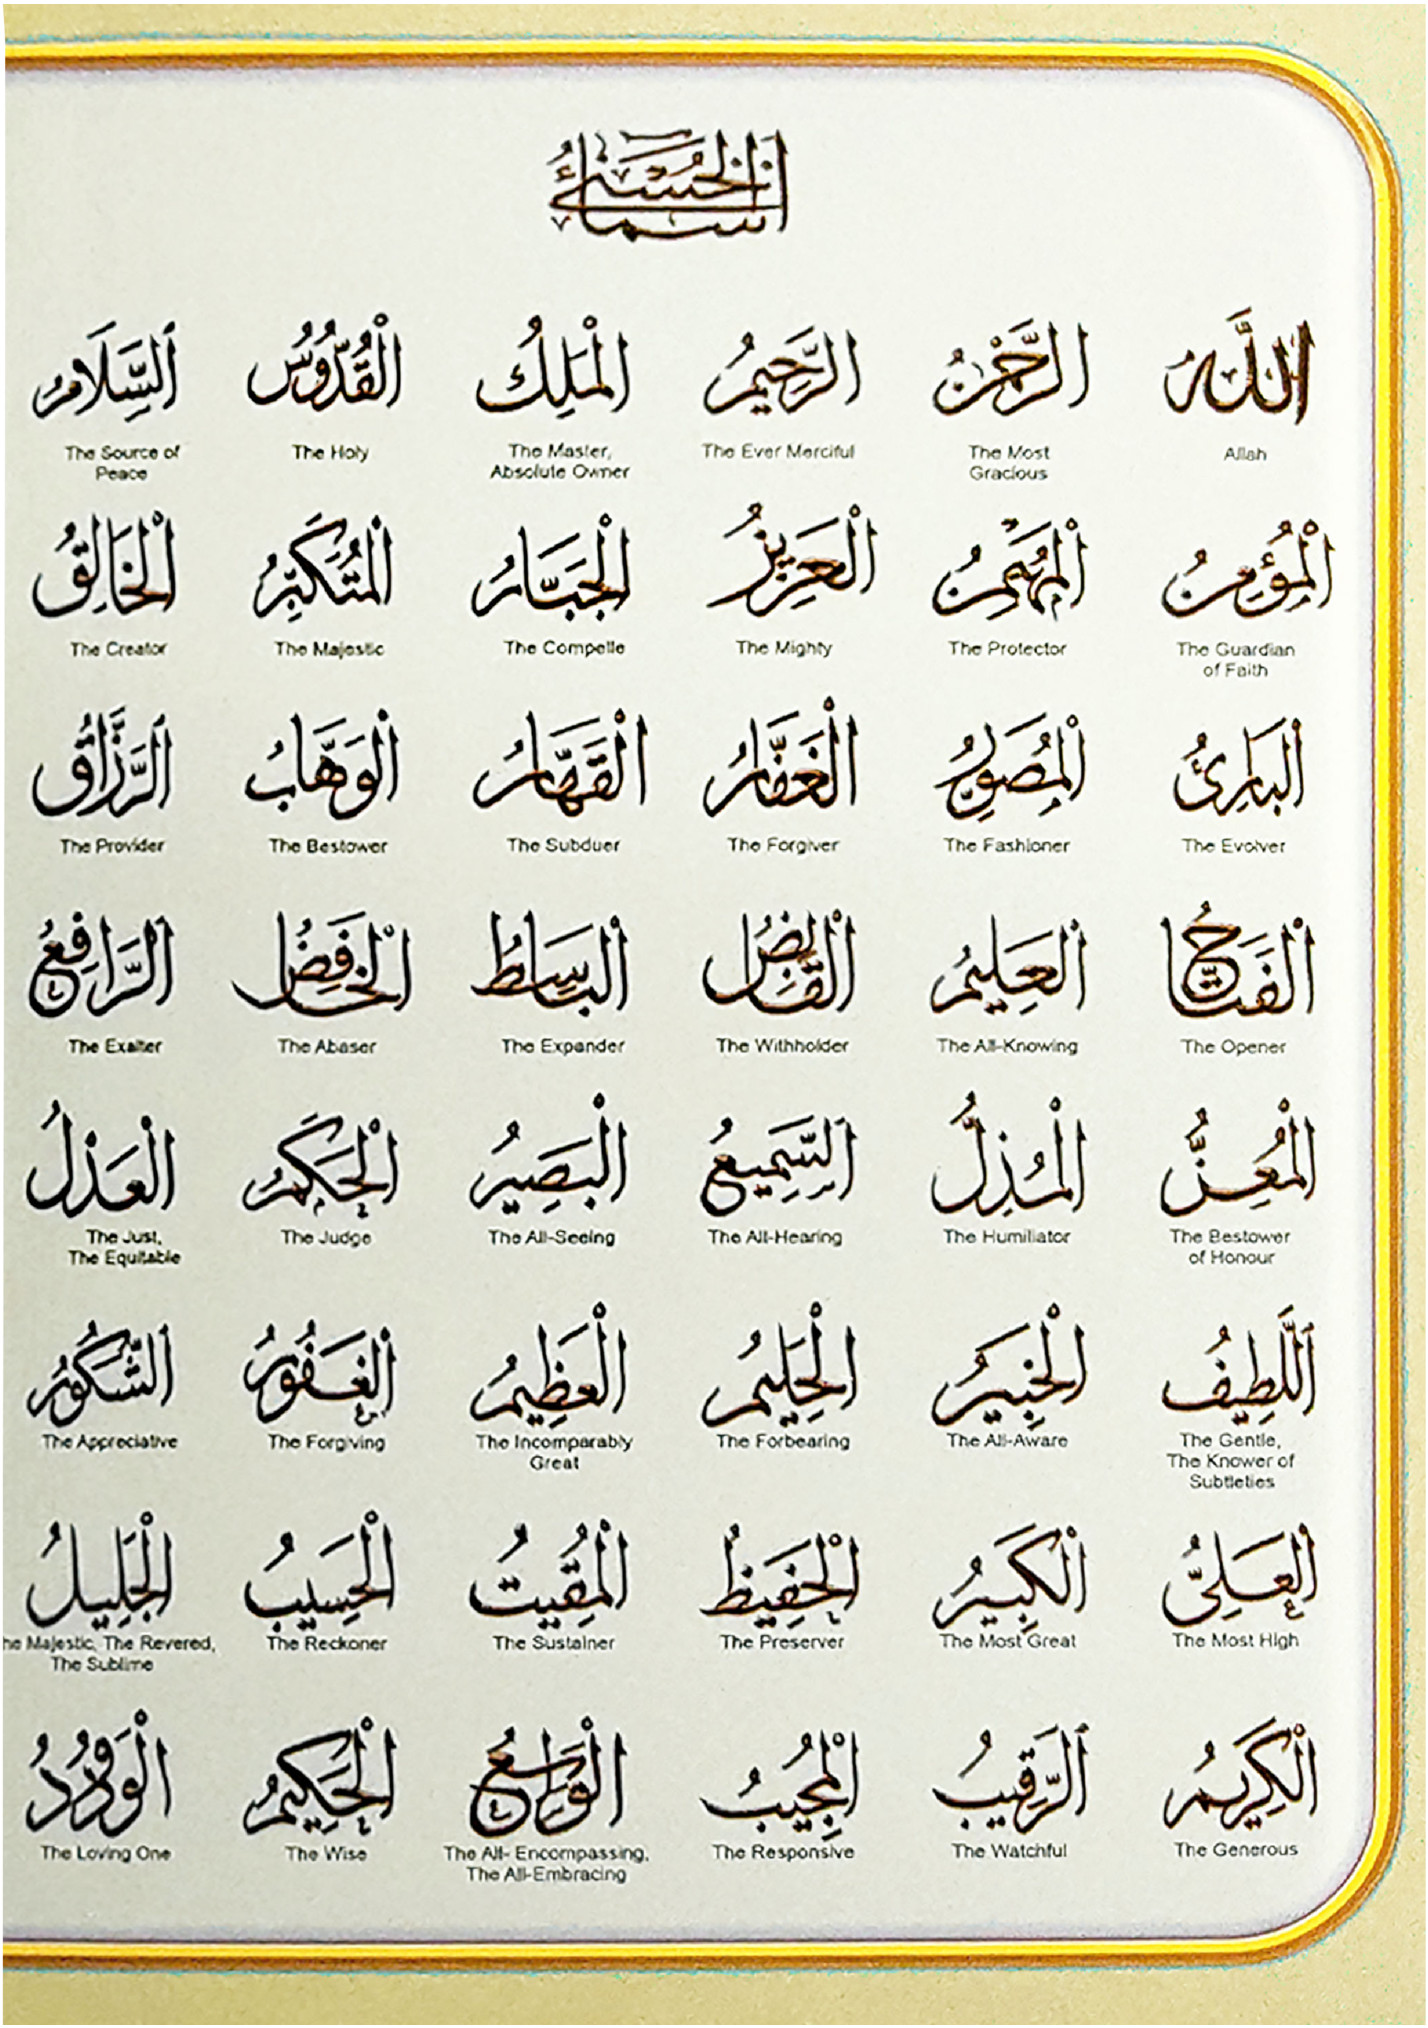 اَللّٰه
Allah
الرَّحْمٰنُ
The Most
Gracious
الرَّحِيمُ
The Ever Merciful
الْمَلِكُ
The Master,
Absolute Owner
الْقُدُّوسُ
The Holy
اَلسَّلَامُ
The Source of
Peace
الْمُؤْمِنُ
The Guardian
of Faith
الْمُهَيْمِنُ
The Protector
الْعَزِيزُ
The Mighty
الْجَبَّارُ
The Compelle
الْمُتَكَبِّرُ
The Majestic
الْخَالِقُ
The Creator
اَلْبَارِئُ
The Evolver
الْمُصَوِّرُ
The Fashioner
الْغَفَّارُ
The Forgiver
الْقَهَّارُ
The Subduer
الْوَهَّابُ
The Bestower
اَلرَّزَّاقُ
The Provider
الْفَتَّاحُ
The Opener
اَلْعَلِيمُ
The All-Knowing
الْقَابِضُ
The Withholder
الْبَاسِطُ
The Expander
الْخَافِضُ
The Abaser
اَلرَّافِعُ
The Exalter
الْمُعِزُّ
The Bestower
of Honour
الْمُذِلُّ
The Humiliator
اَلسَّمِيعُ
The All-Hearing
الْبَصِيرُ
The All-Seeing
الْحَكَمُ
The Judge
الْعَدْلُ
The Just,
The Equitable
اَللَّطِيفُ
The Gentle,
The Knower of
Subtleties
الْخَبِيرُ
The All-Aware
الْحَلِيمُ
The Forbearing
الْعَظِيمُ
The Incomparably
Great
الْغَفُورُ
The Forgiving
اَلشَّكُورُ
The Appreciative
الْعَلِىُّ
The Most High
الْكَبِيرُ
The Most Great
الْحَفِيظُ
The Preserver
الْمُقِيتُ
The Sustainer
الْحَسِيبُ
The Reckoner
الْجَلِيلُ
he Majestic, The Revered,
The Sublime
الْكَرِيمُ
The Generous
اَلرَّقِيبُ
The Watchful
الْمُجِيبُ
The Responsive
الْوَاسِعُ
The All- Encompassing,
The All-Embracing
الْحَكِيمُ
The Wise
الْوَدُودُ
The Loving One